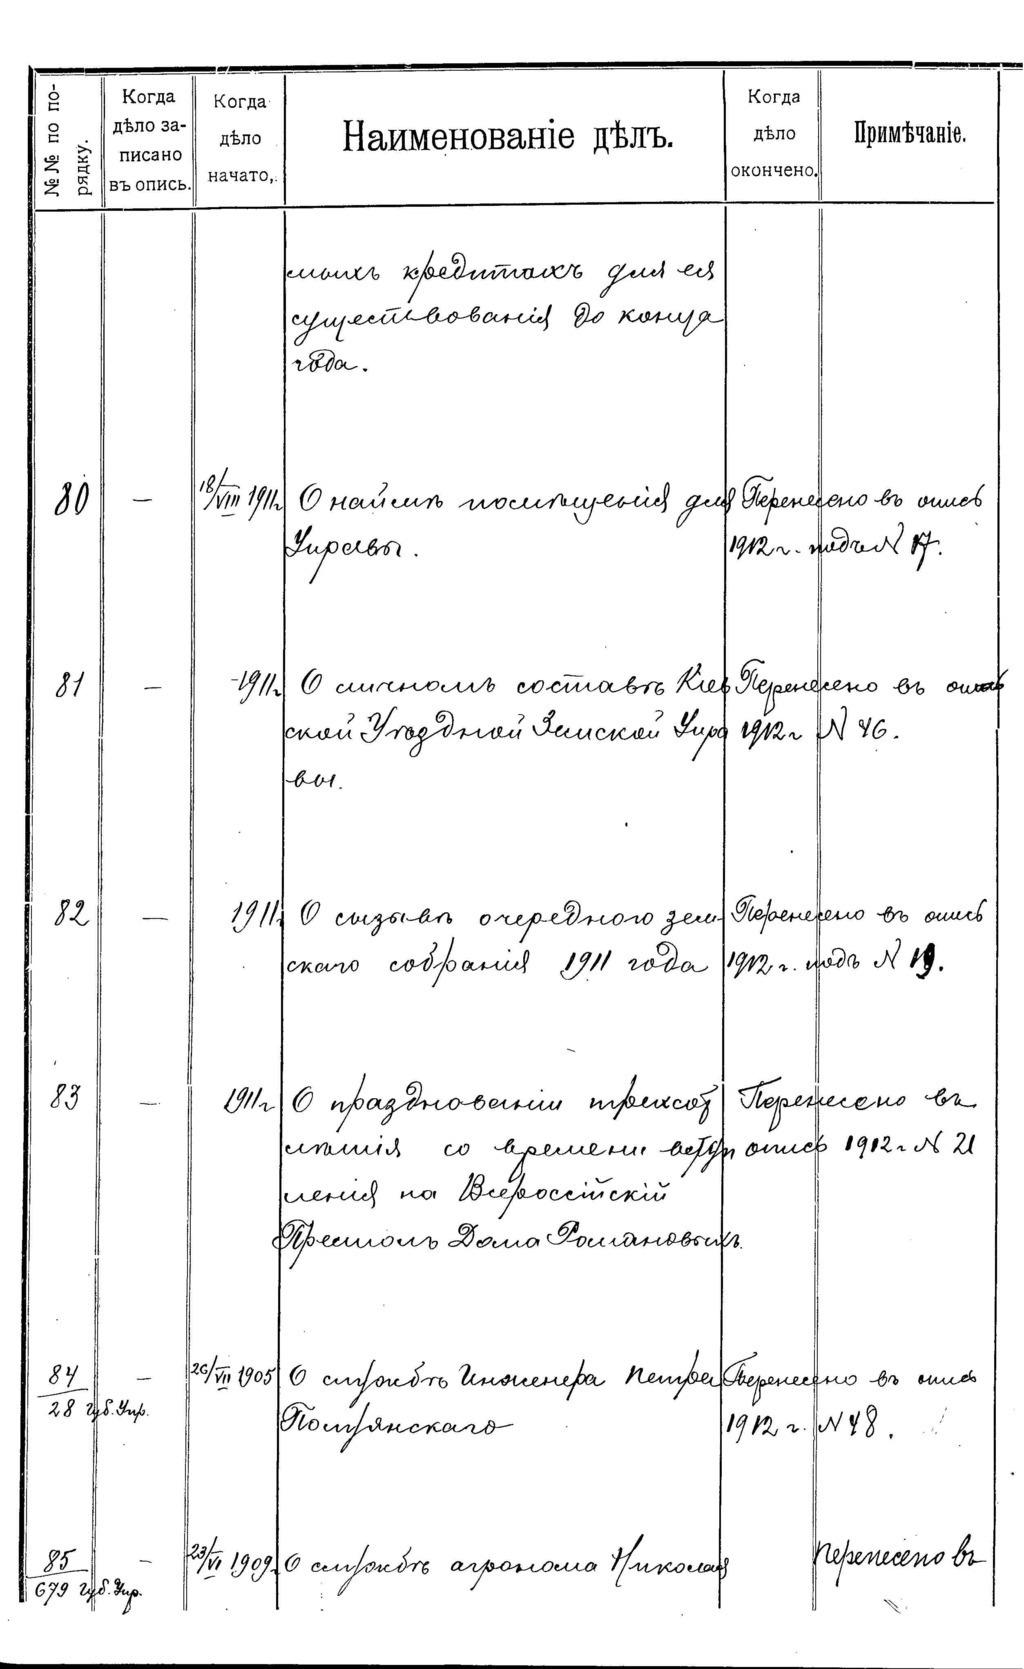 №№ по по-
рядку.
Когда
дѣло за-
писано
въ опись.
Когда
дѣло
начато.
Наименованіе дѣлъ.
Когда
дѣло
окончено.
Примѣчаніе.
мыхъ кредитахъ для ея
существованія до конца
года.
80 — 18/VIII 1911г О наймѣ помѣщенія для Перенесено въ опись
Управы. 1912 г. подъ N 17.
81 — 1911г О личномъ составѣ Кіев Перенесено въ опись
ской Уѣздной Земской Упра 1912 г N 46.
вы.
82 — 1911г О созывѣ очередного зем Перенесено въ опись
скаго собранія 1911 года 1912 г. подъ N 19.
83 — 1911г О праздновании трехсот Перенесено въ
лѣтія со времени вступ опись 1912 г N 21
ленія на Всероссійскій
Престолъ Дома Романовыхъ.
84 — 26/VII 1905 О службѣ Инженера Петра Перенесено въ опись
28 Губ. Упр. 1912 г. N 48.
85 — 23/VI 1909г. О службѣ агронома Николая Перенесено въ
679 Губ. Упр.